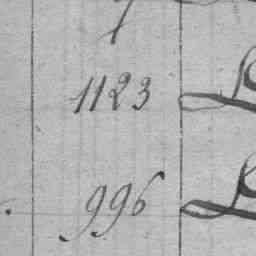 1123
996